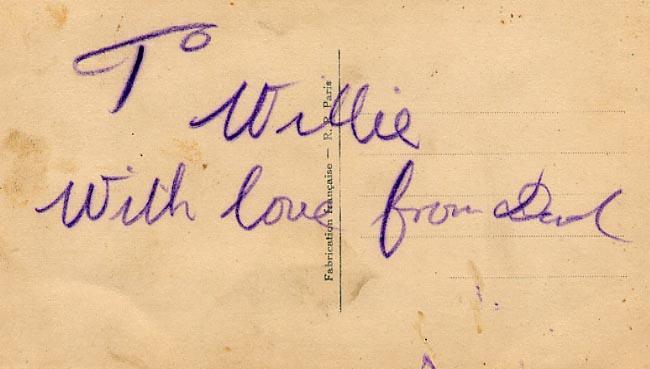 To
Willie
With love from
Fabrication française — R. P. Paris